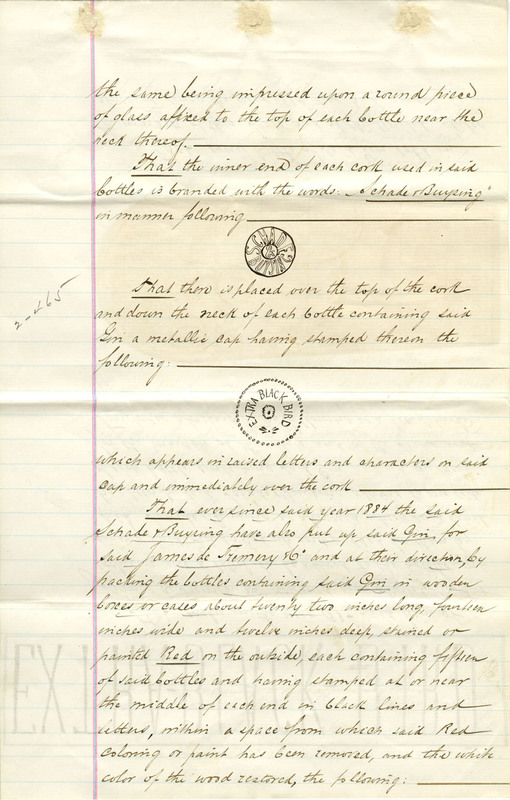 the same being impressed upon a round piece
of glass affixed to the top of each bottle near the
neck thereof.
That the inner end of each cork used in said
bottles is branded with the words. "Schade & Buysing"
in manner following
SCHADE & BUYSING
2-465
That there is placed over the top of the cork
and down the neck of each bottle containing said
Gin a metallic cap having stamped thereon the
following:
EXTRA BLACK BIRD
which appears in raised letters and characters on said
cap and immediately over the cork
That ever since said year 1884 the said
Schade & Buysing have also put up said Gin, for
said James de Fremery & Co and at their direction, by
packing the bottles containing said Gin in wooden
boxes or cases about twenty two inches long, fourteen
inches wide and twelve inches deep, stained or
painted Red on the outside, each containing fifteen
of said bottles and having stamped at or near
the middle of each end in black lines and
letters, within a space from which said Red
coloring or paint has been removed, and the white
color of the wood restored, the following: